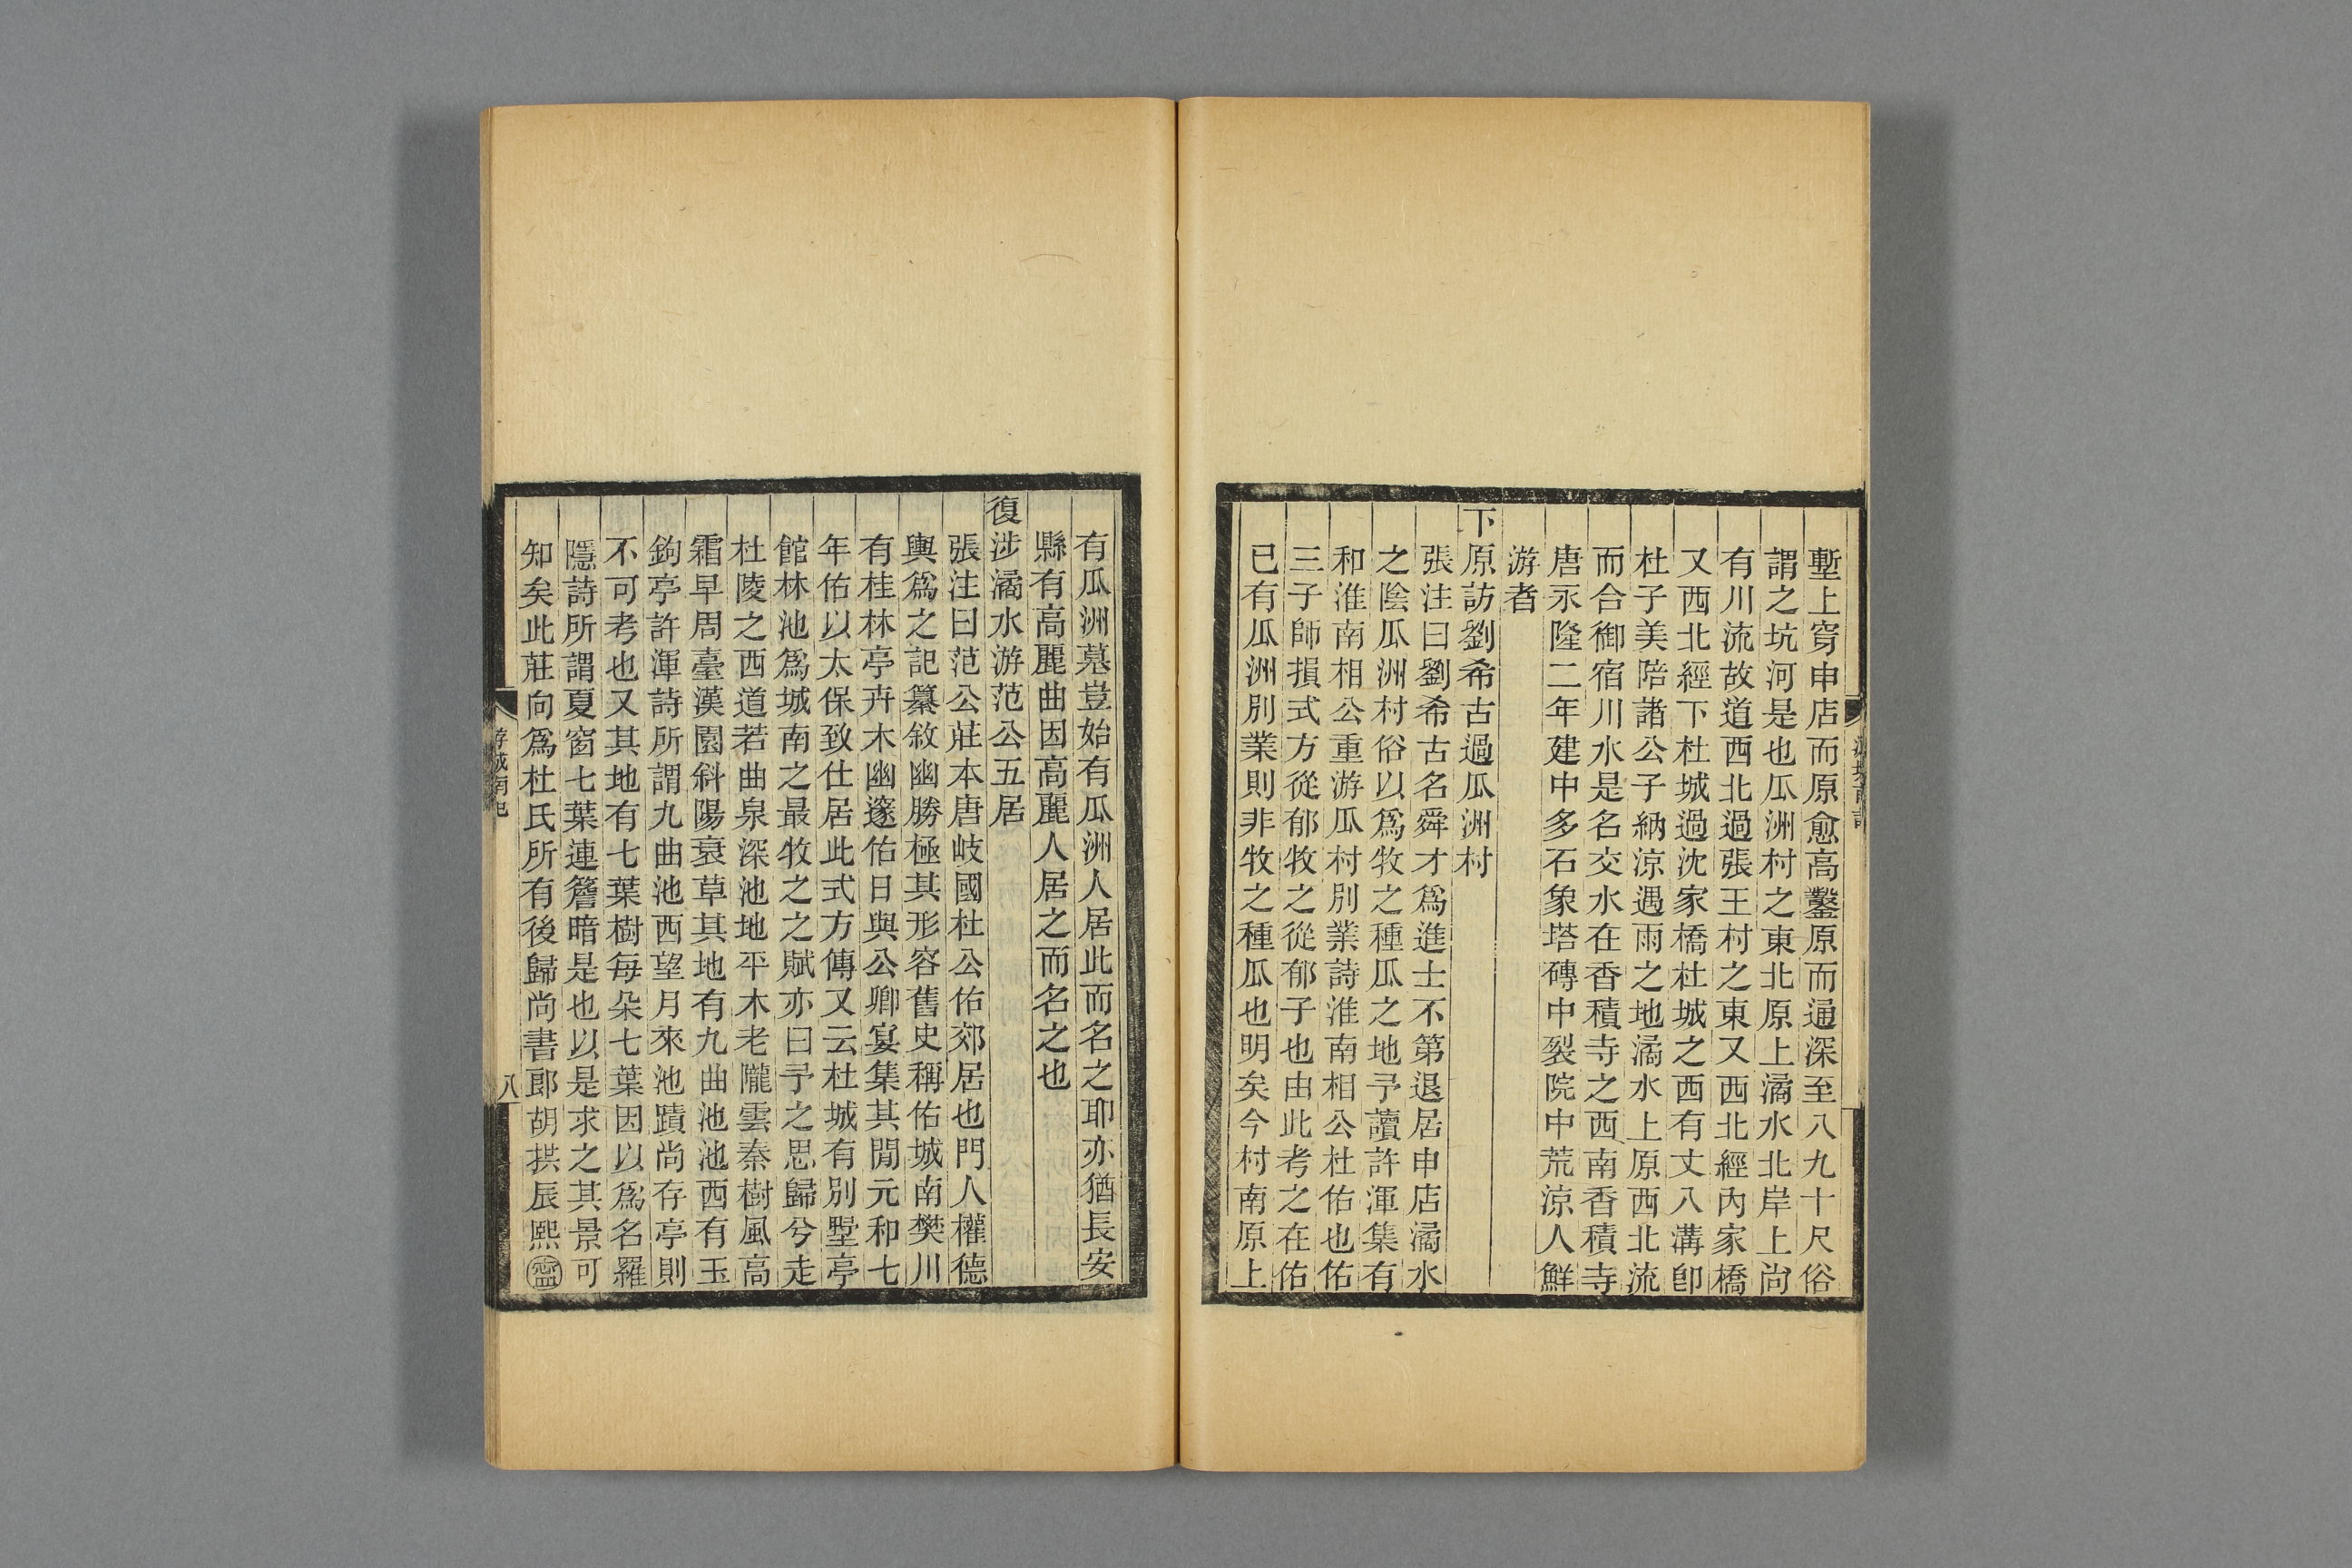 塹上穹申店而原愈高鑿原而通深至八九十尺俗
謂之坑河是也瓜洲村之東北原上潏水北岸上尚
有川流故道西北過張王村之東又西北經內家橋
又西北經下杜城過沈家橋杜城之西有丈八溝卽
杜子美陪諸公子納涼遇雨之地潏水上原西北流
而合御宿川水是名交水在香積寺之西南香積寺
唐永隆二年建中多石象塔磚中裂院中荒涼人鮮
游者
下原訪劉希古過瓜洲村
張注曰劉希古名舜才爲進士不第退居申店潏水
之陰瓜洲村俗以爲牧之種瓜之地予讀許渾集有
和淮南相公重游瓜村別業詩淮南相公杜佑也佑
三子師損式方從郁牧之從郁子也由此考之在佑
已有瓜洲別業則非牧之種瓜也明矣今村南原上
有瓜洲墓豈始有瓜洲人居此而名之耶亦猶長安
縣有高麗曲因高麗人居之而名之也
復涉潏水游范公五居
張注曰范公莊本唐岐國杜公佑郊居也門人權德
輿爲之記纂敘幽勝極其形容舊史稱佑城南樊川
有桂林亭卉木幽邃佑日與公卿宴集其閒元和七
年佑以太保致仕居此式方傳又云杜城有別墅亭
館林池爲城南之最牧之之賦亦曰予之思歸兮走
杜陵之西道若曲泉深池地平木老隴雲秦樹風高
霜早周臺漢園斜陽衰草其地有九曲池池西有玉
鉤亭許渾詩所謂九曲池西望月來池蹟尚存亭則
不可考也又其地有七葉樹每朶七葉因以爲名羅
隱詩所謂夏窗七葉連簷暗是也以是求之其景可
知矣此莊向爲杜氏所有後歸尚書郎胡拱辰熙
游城南記
八